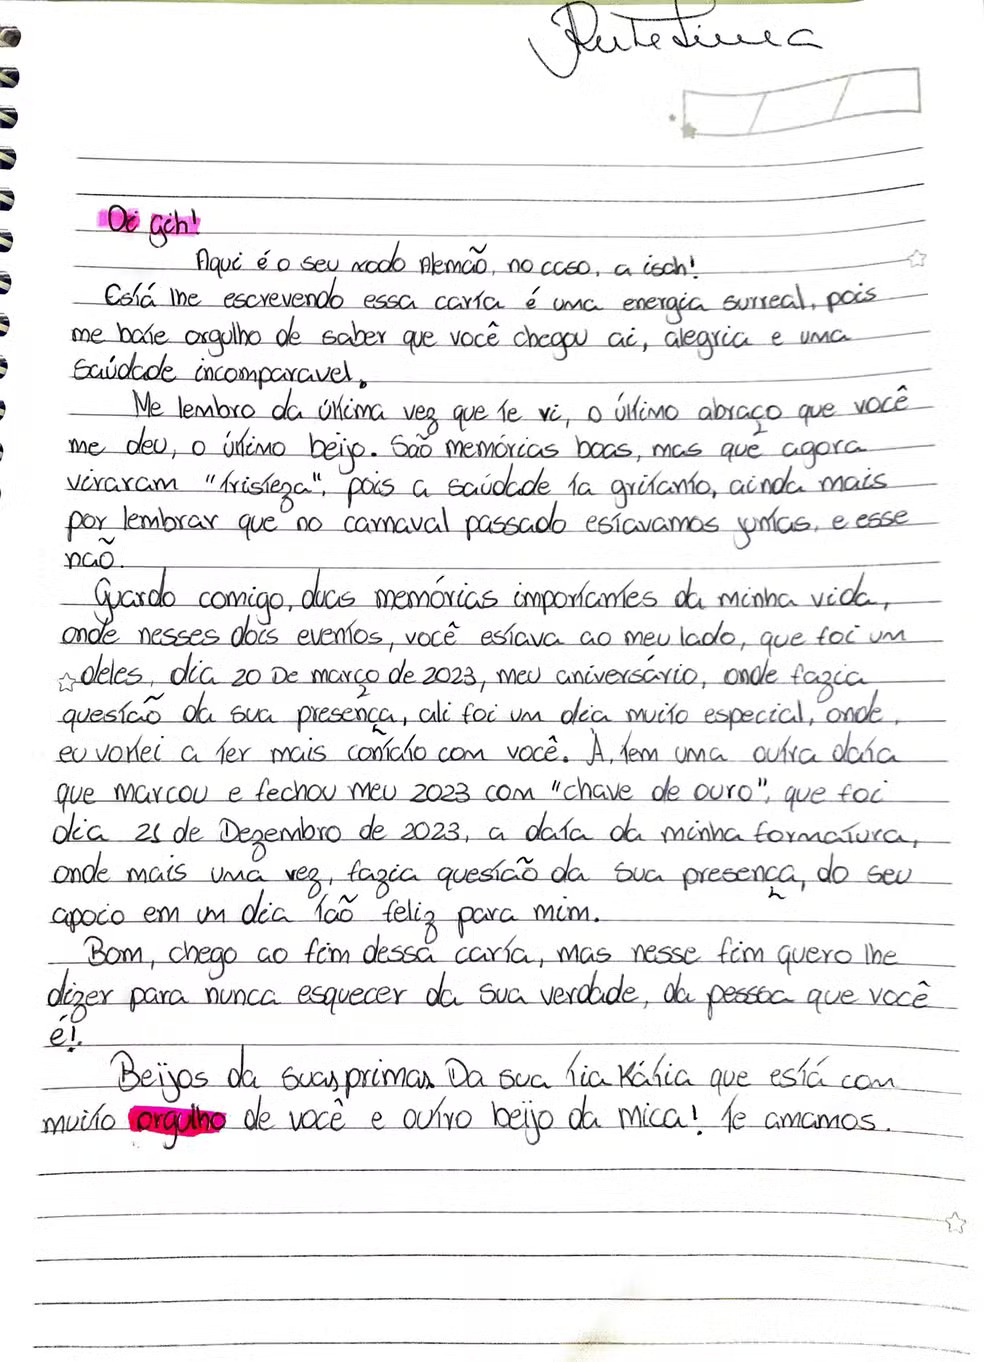 Rute Lima
Oi Gih!
Aqui é o seu xodo Alemão, no caso, a isch!
Está lhe escrevendo essa carta é uma energia surreal, pois
me bate orgulho de saber que você chegou ai, alegria e uma
saúdade incomparavel.
Me lembro da última vez que te vi, o último abraço que você
me deu, o último beijo. São memórias boas, mas que agora
viraram "tristeza", pois a saúdade ta gritanto, ainda mais
por lembrar que no carnaval passado estavamos juntas, e esse
naõ.
Guardo comigo, duas memórias importantes da minha vida,
onde nesses dois eventos, você estava ao meu lado, que foi um
deles, dia 20 De março de 2023, meu aniversário, onde fazia
questão da sua presença, ali foi um dia muito especial, onde,
eu voltei a ter mais contato com você. À, tem uma outra data
que marcou e fechou meu 2023 com "chave de ouro", que foi
dia 21 de Dezembro de 2023, a data da minha formatura,
onde mais uma vez, fazia questão da sua presença, do seu
apoio em um dia tão feliz para mim.
Bom, chego ao fim dessa carta, mas nesse fim quero lhe
dizer para nunca esquecer da sua verdade, da pessoa que você
é!.
Beijos da suas primas. Da sua tia Kátia que está com
muito orgulho de você e outro beijo da mica! Te amamos.